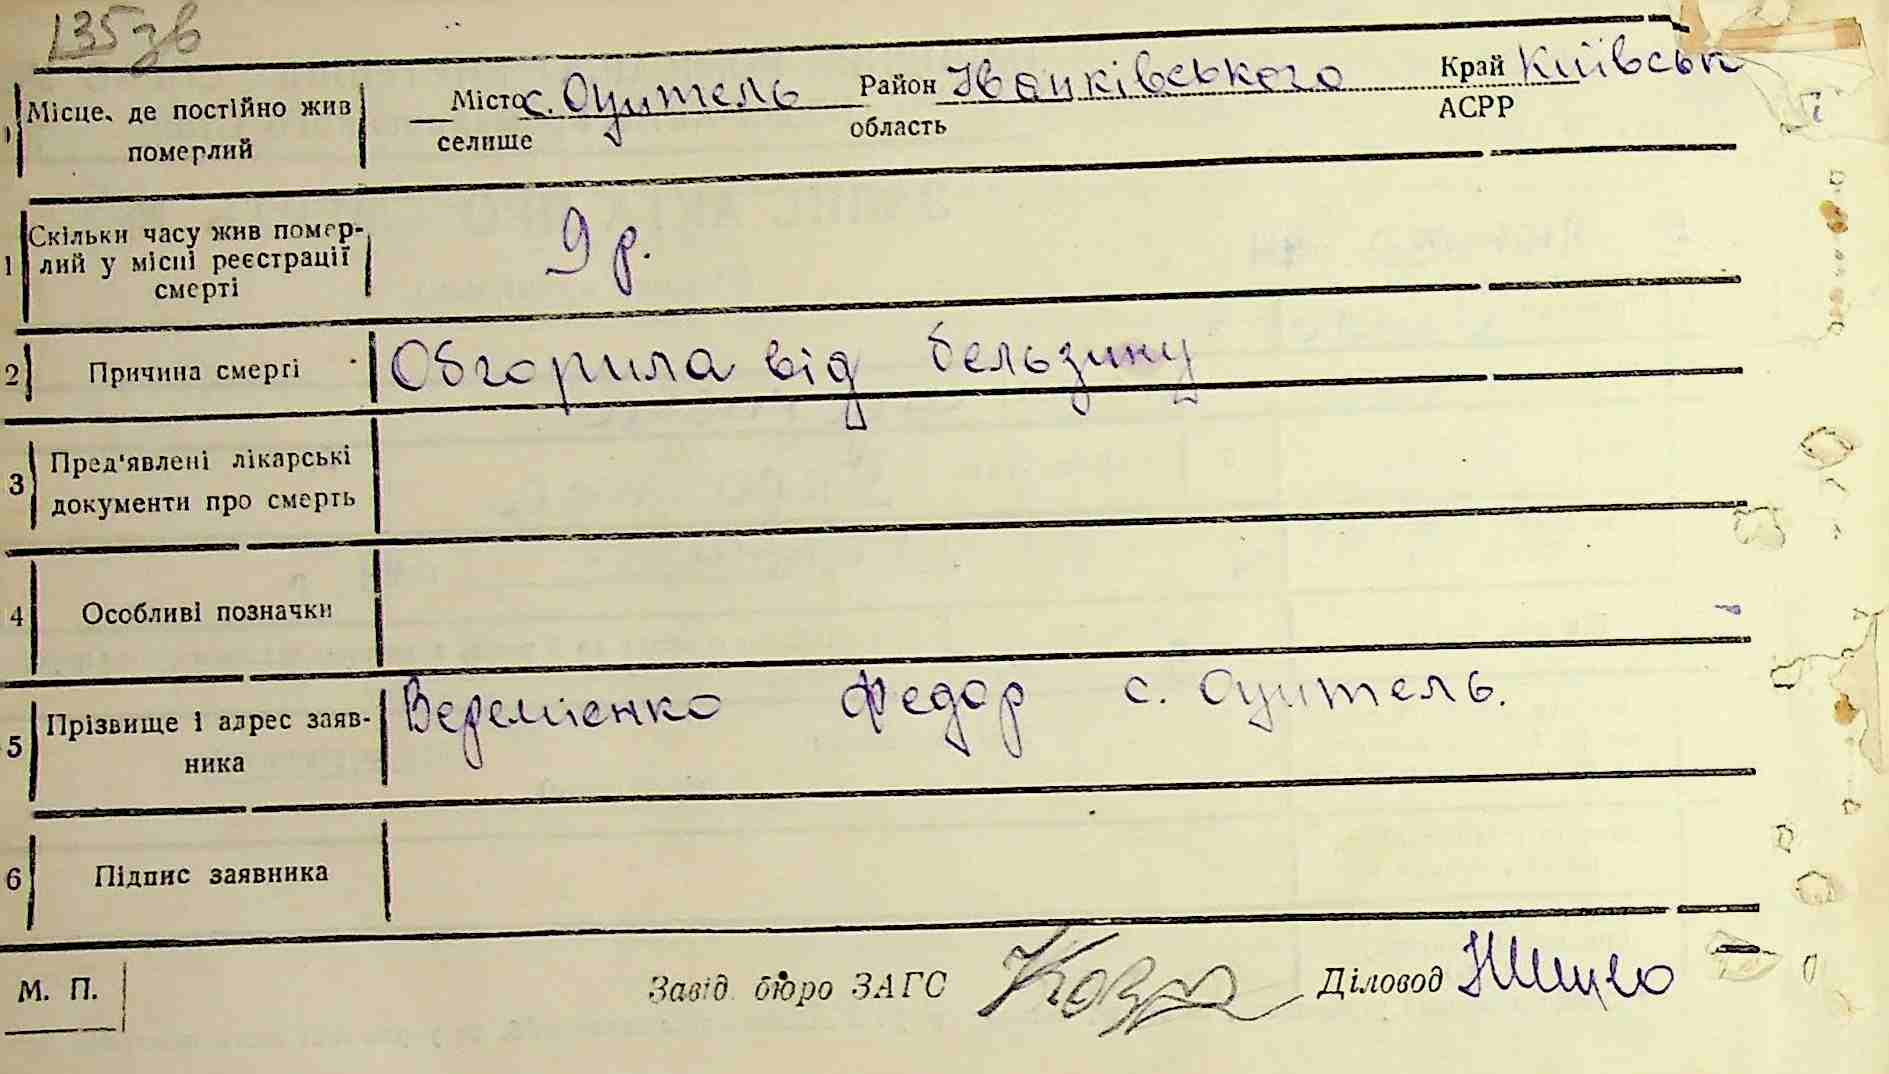 135зв
Місце, де постійно жив померлий
Місто с. Оцитель Район Іванківського Край Київськ
селище область АСРР
1 Скільки часу жив помер-
лий у місці реєстрації
смерті
9 р.
2 Причина смерті Обгорила від бельзину
3 Пред'явлені лікарські
документи про смерть
4 Особливі позначки
5 Прізвище і адрес заяв-
ника
Веремієнко Федор с. Оцитель.
6 Підпис заявника
М. П. Завід. бюро ЗАГС Діловод